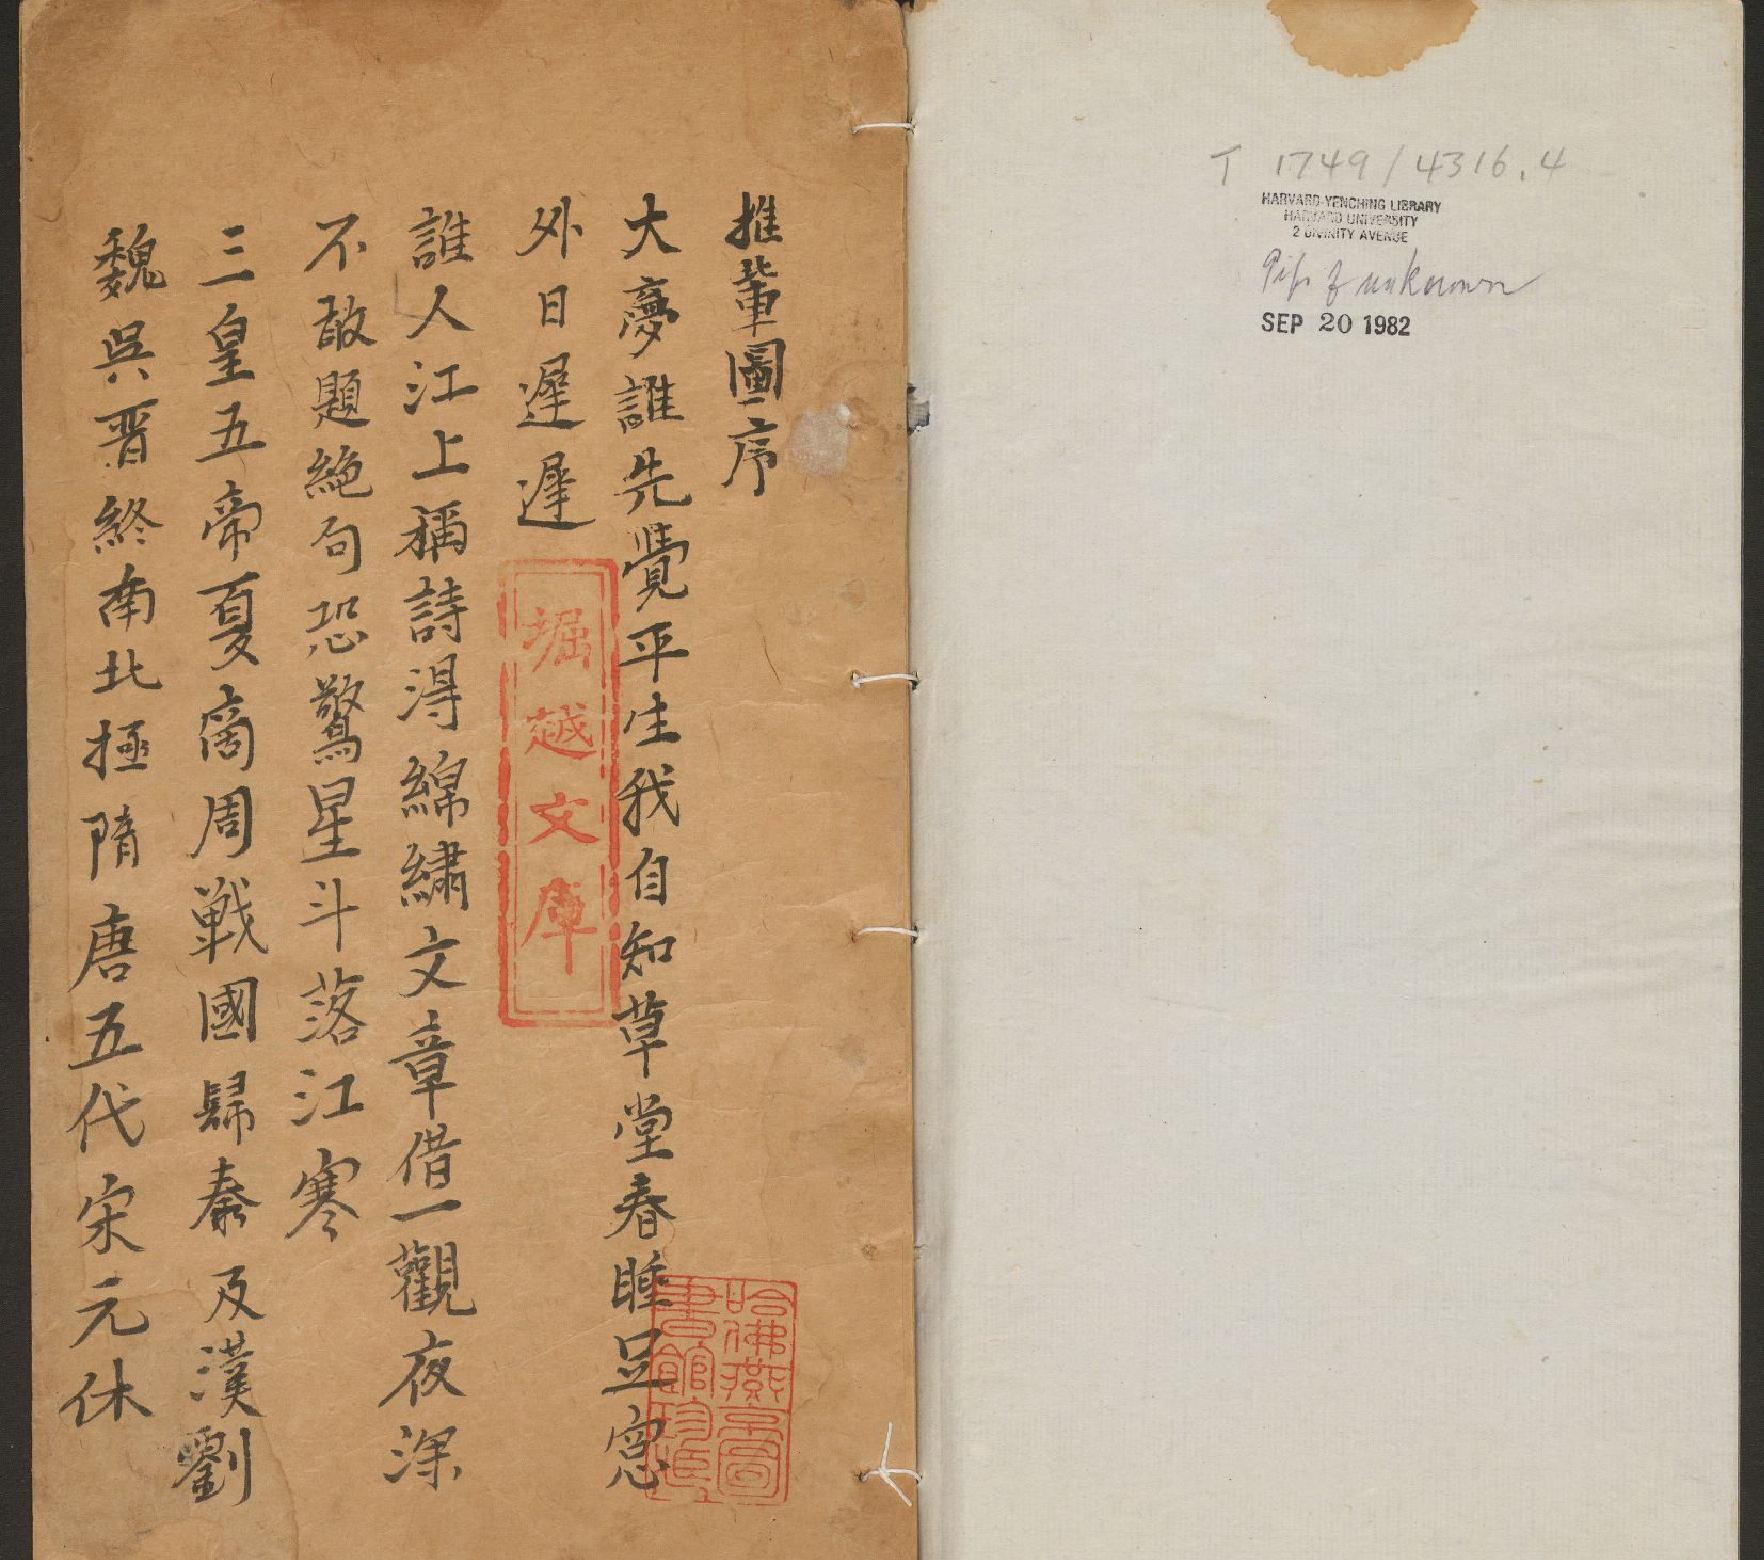 推輩圖序
大夢誰先覺平生我自知草堂春睡足窓
外日遲遲
誰人江上稱詩淂綿繡文章借一觀夜深
不敢題絶句恐驚星斗落江寒
三皇五帝夏商周戰國歸秦及漢劉
魏吳晋終南北極隋唐五代宋元休
堀越文庫
哈佛燕京圖
書館珍藏
T 1749/4316.4
HARVARD-YENCHING LIBRARY
HARVARD UNIVERSITY
2 DIVINITY AVENUE
Gift of unknown
SEP 20 1982